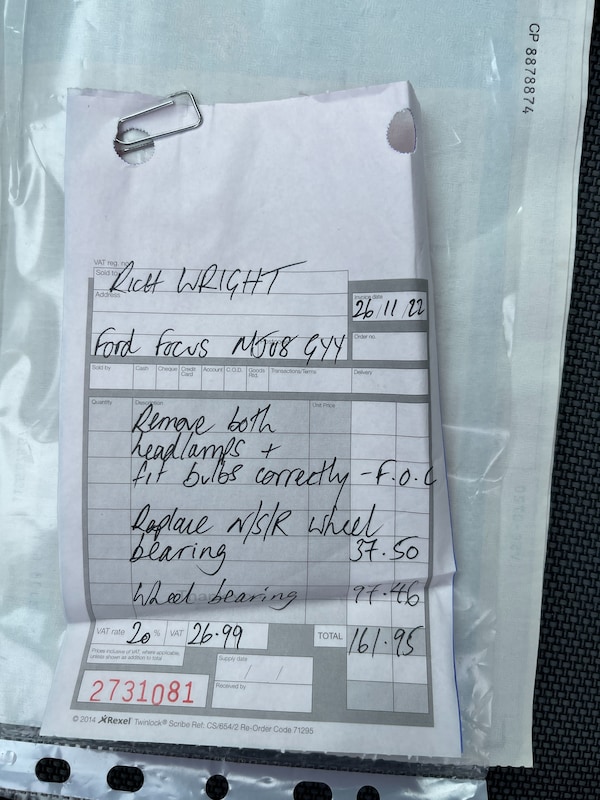 CP 8878874
VAT reg. no.
Sold to RICH WRIGHT
Address
Invoice date
26/11/22
Ford Focus MJ08 GYY
Order no.
Sold by Cash Cheque Credit Card Account C.O.D. Goods Rtd. Transactions/Terms Delivery
Quantity Description Unit Price
Remove both
headlamps +
fit bulbs correctly - F.O.C
Replace N/S/R wheel
bearing 37.50
Wheel bearing 97.46
VAT rate 20 % VAT 26.99 TOTAL 161.95
Prices inclusive of VAT, where applicable,
unless shown as addition to total
Supply date
/ /
Received by
2731081
© 2014 Rexel Twinlock® Scribe Ref: CS/654/2 Re-Order Code 71295